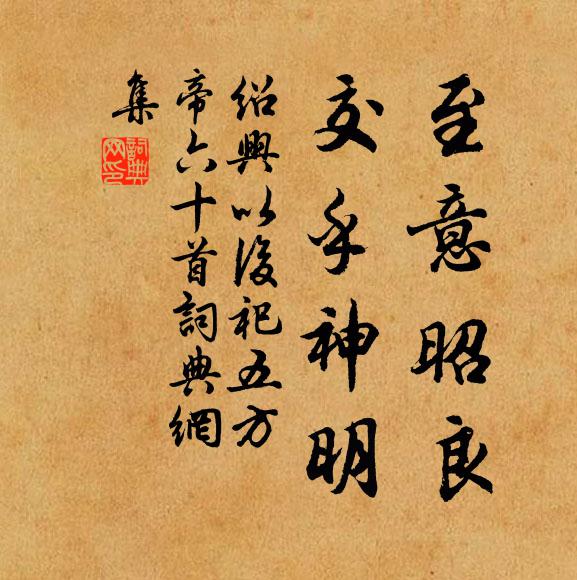 至意昭良
交乎神明
紹興以後祀五方
帝六十首詞典網
集
詞典網印